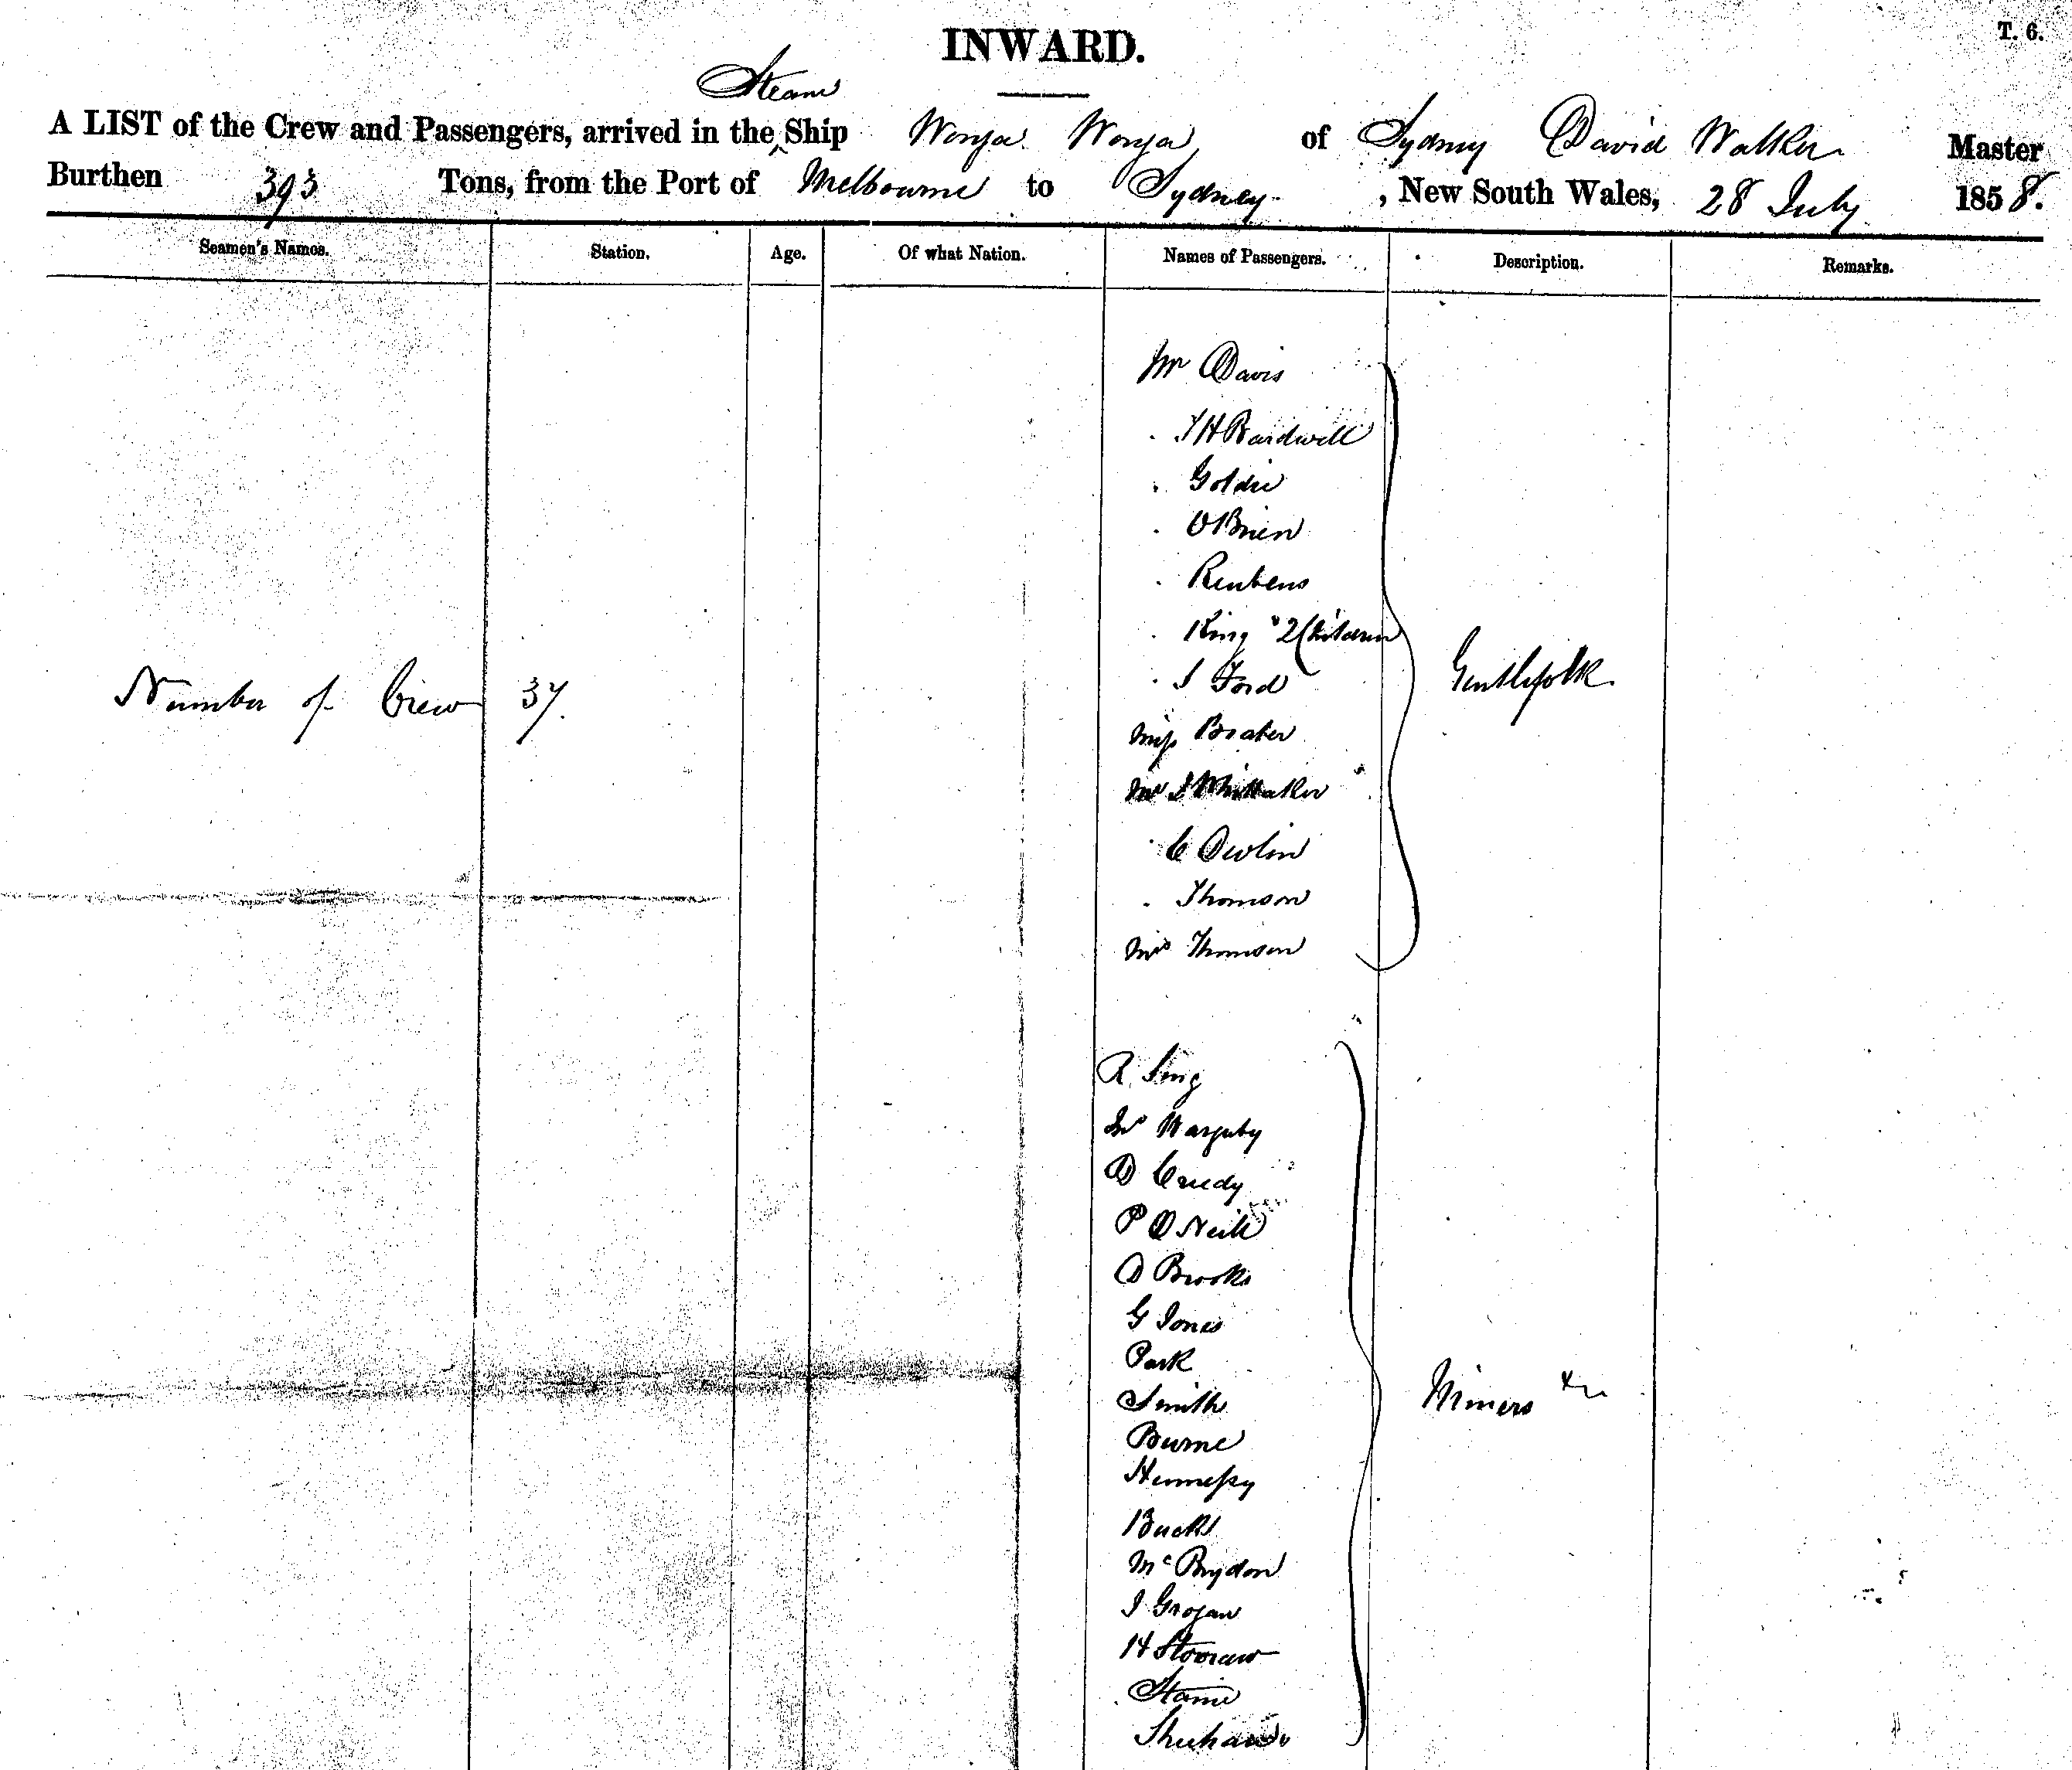 INWARD.
T. 6.
Steam
A LIST of the Crew and Passengers, arrived in the Ship Wonga Wonga of Sydney David Walker Master
Burthen 393 Tons, from the Port of Melbourne to Sydney, New South Wales, 28 July 1858.
Seamen's Names. Station. Age. Of what Nation. Names of Passengers. Description. Remarks.
Mr Davis
T H Bardwell
Goldie
O'Brien
Reubens
King " 2 Children
J Ford
Gentlefolk
Number of Crew 37.
Miss
Mr J Whittaker
C Devlin
Thomson
Mrs Thomson
R. King
D Creedy
P O Neill
D Brooks
G Jones
Park
Smith
Miners &c
Burne
Hennessy
Bucks
McBrydon
J Grogan
H
Sheehan